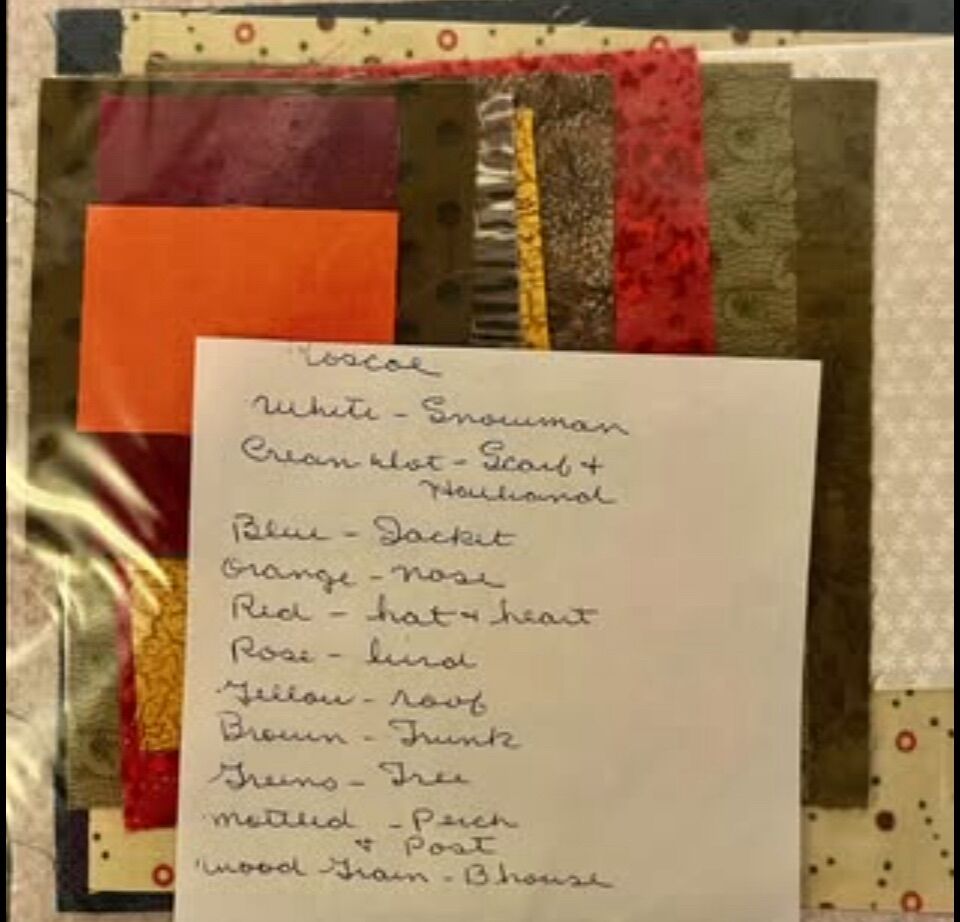 Roscoe
White - Snowman
Cream w/dot - Scarf +
Blue - Jacket
Orange - nose
Red - hat + heart
Rose - bird
Yellow - roof
Brown - Trunk
Greens - Tree
mottled - Perch
+ Post
wood Grain - B house